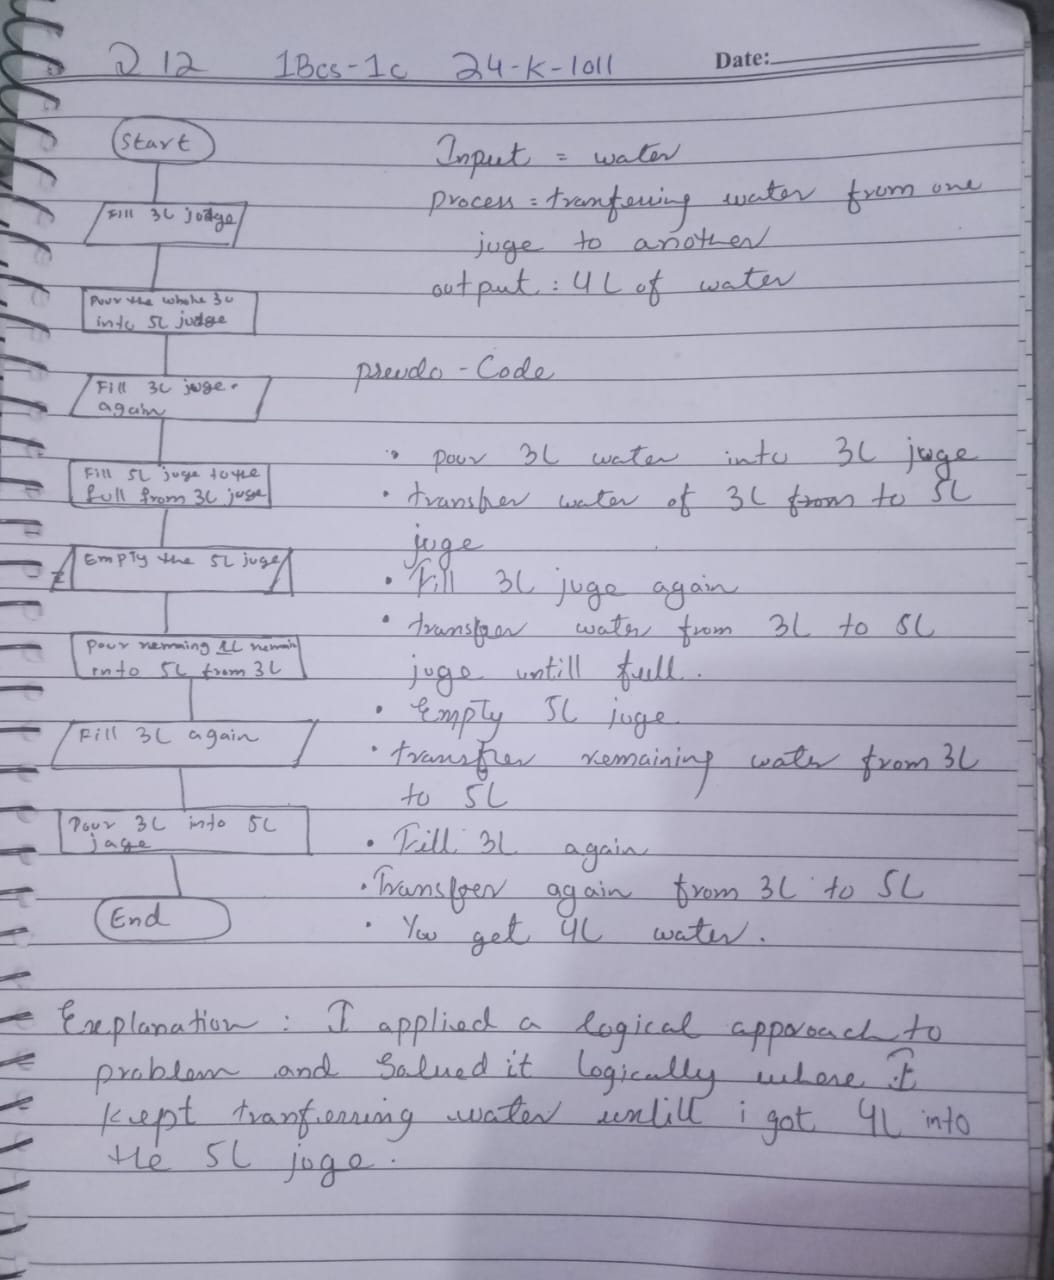 Q 12 1Bcs-1c 24-K-1011 Date:
Start
Fill 3L jodge
Pour the whole 3L
into 5L judge
Fill 3L juge.
again
Fill 5L juge to the
full from 3L juge
Empty the 5L juge
Pour remming 1L remain
into 5L from 3L
Fill 3L again
Pour 3L into 5L
jage
End
Input = water
process = tranferring water from one
juge to another
output : 4L of water
pseudo - Code
• pour 3L water into 3L juge
• transfer water of 3L from to 5L
juge
• Fill 3L juge again
• transfer water from 3L to 5L
juge untill full.
• Empty 5L juge
• transfer remaining water from 3L
to 5L
• Fill 3L again
• Transfer again from 3L to 5L
• You get 4L water.
Explanation : I applied a logical approach to
problem and Salued it logically where I
kept tranferring water untill i got 4L into
the 5L joge.